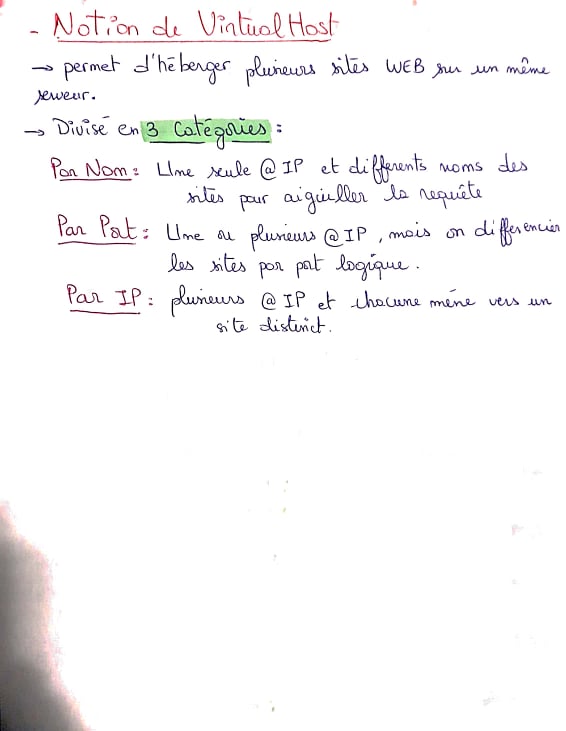 - Notion de Virtual Host
→ permet d'héberger plusieurs sites WEB sur un même
serveur.
→ Divisé en 3 Catégories :
Par Nom : Une seule @ IP et differents noms des
sites pour aiguiller la requête
Par Port : Une ou plusieurs @ IP, mais on différencier
les sites par port logique.
Par IP : plusieurs @ IP et chacune mène vers un
site distinct.